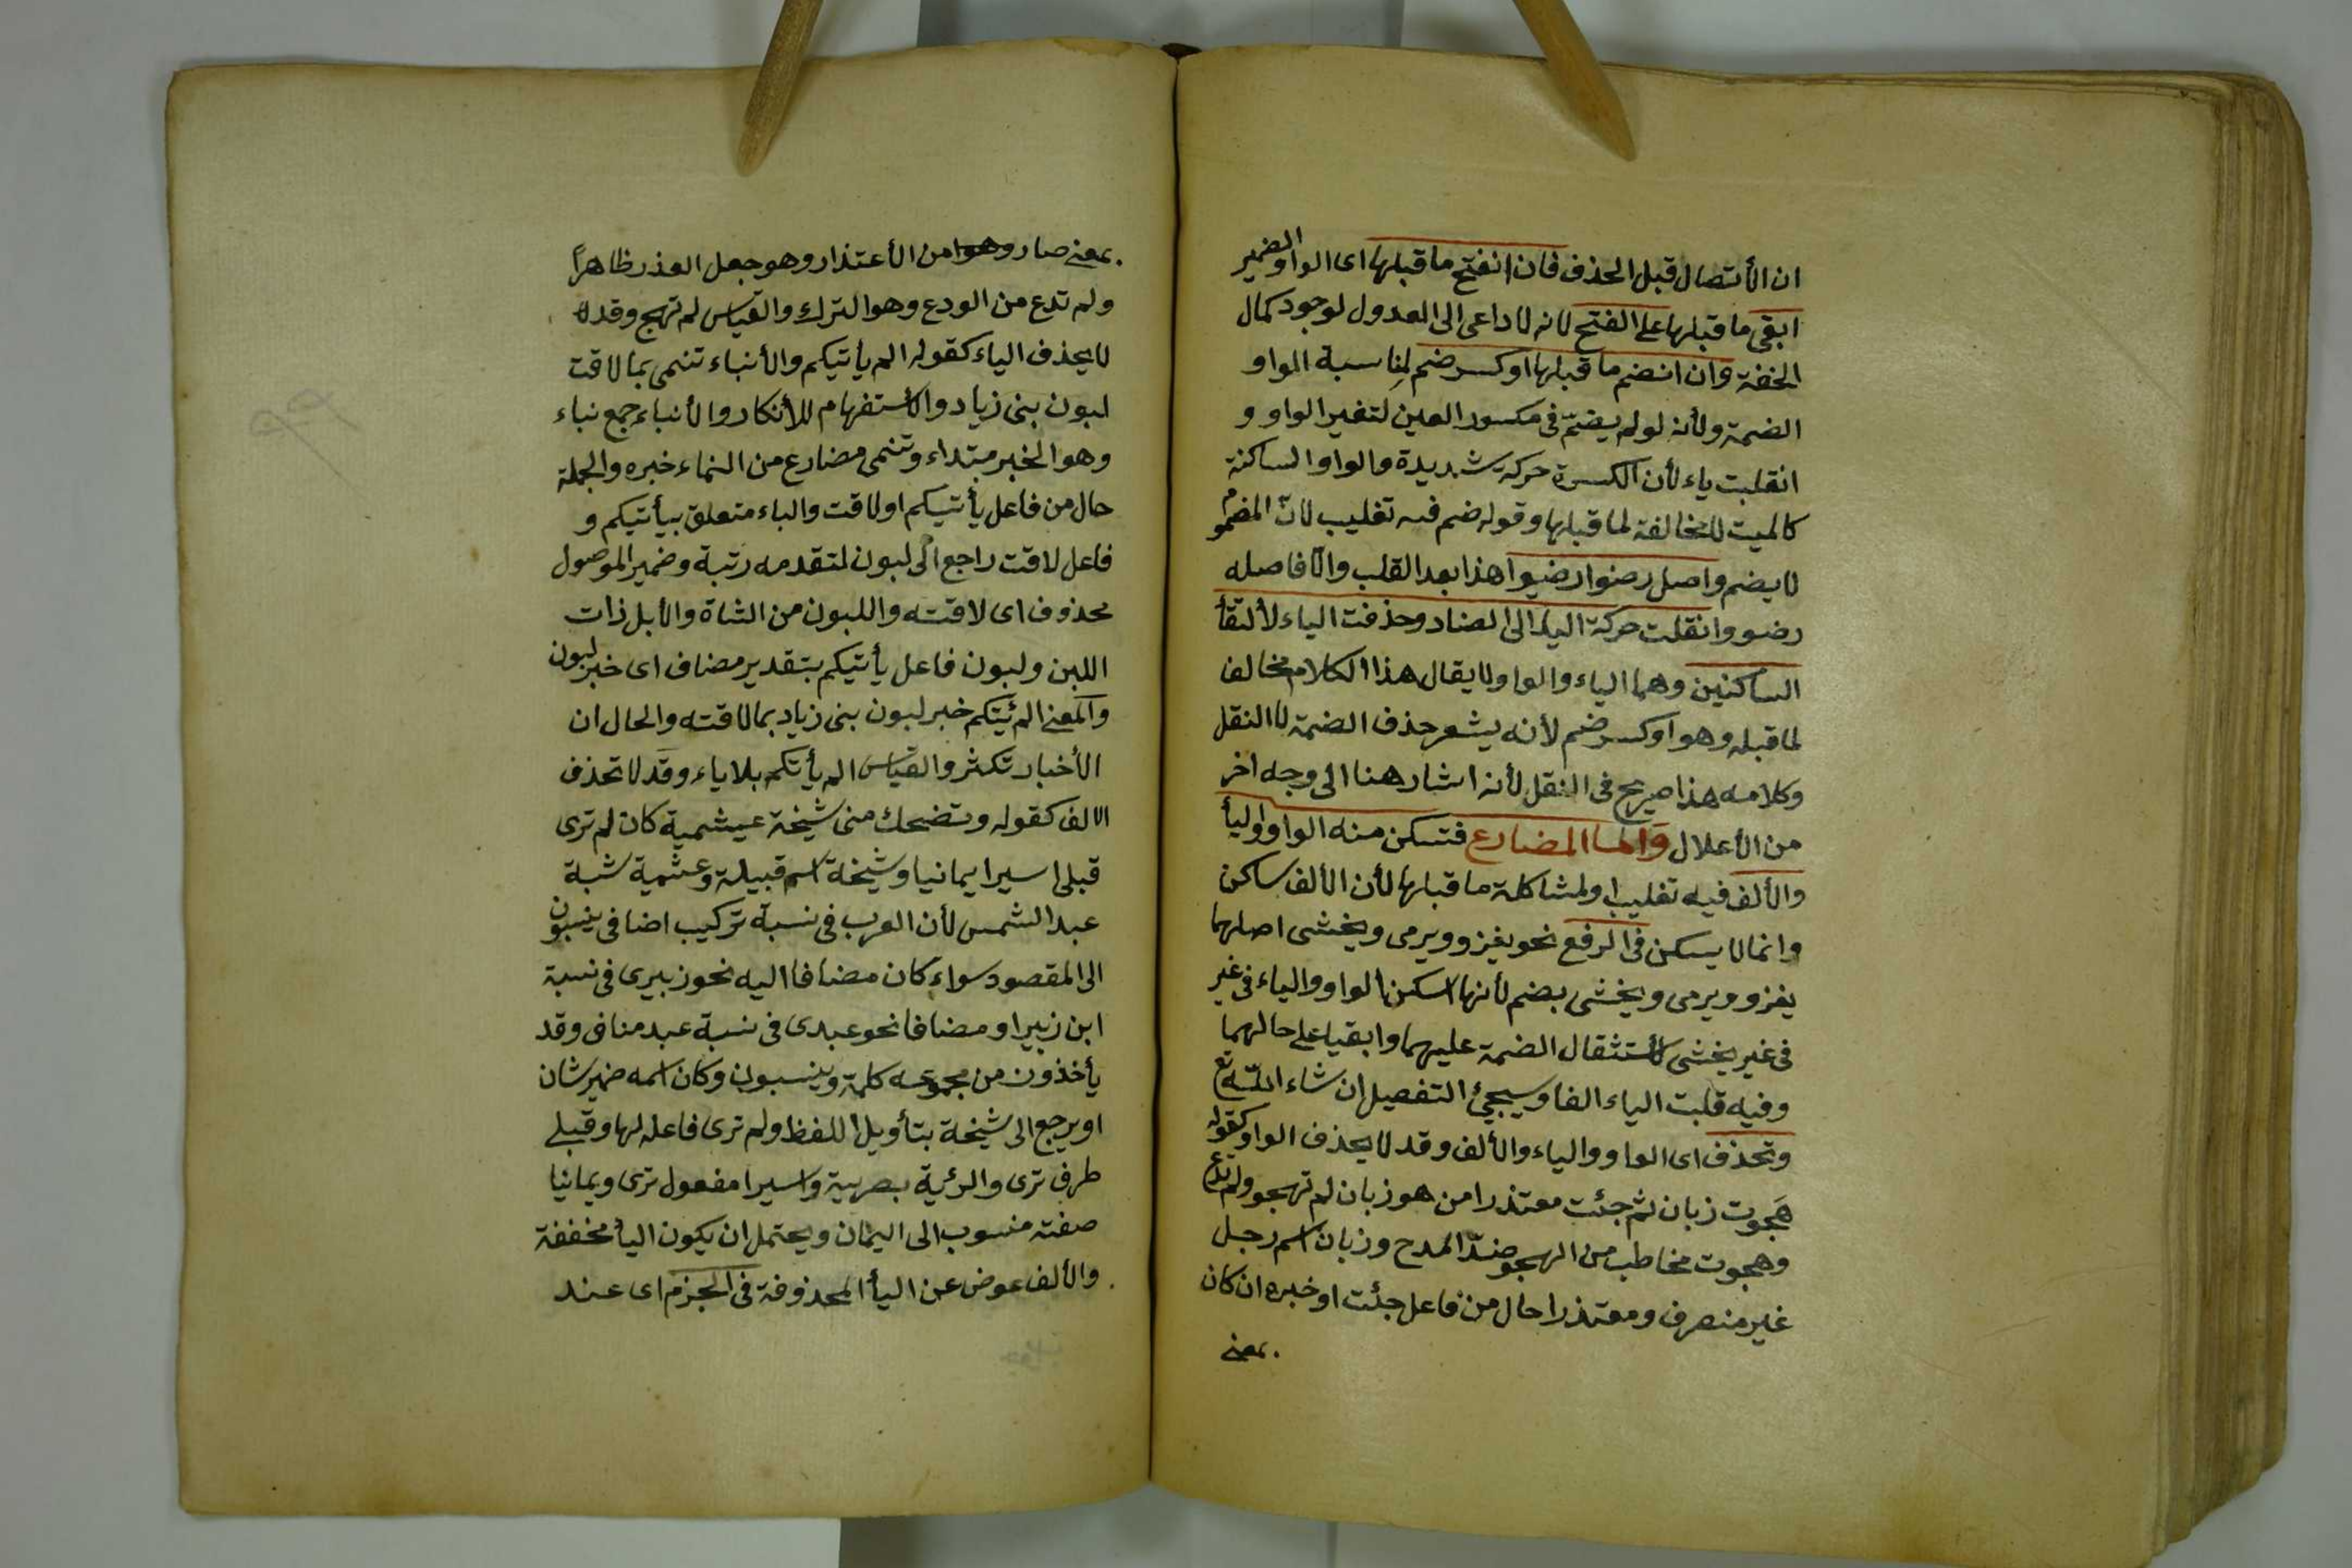 ان الأتصال قبل الحذف فان انفتح ما قبلها اى الواو الضمير
ابقى ما قبلها على الفتح لانه لا داعى الى العدول لوجود كمال
الخفة وان انضم ما قبلها او كسر ضم لمناسبة الواو
الضمة ولأنه لو لم يضمّ فى مكسور العين لتغير الواو و
انقلبت ياء لأن الكسرة حركة شديدة والواو الساكنة
كالميت للمخالفة لما قبلها وقوله ضم فيه تغليب لانّ المضموم
لا يضم واصل رضوا رضيوا هذا بعد القلب والّا فاصله
رضووا نقلت حركة الياء الى الضاد وحذفت الياء لألتقأ
الساكنين وهما الياء والواو ولا يقال هذا الكلام مخالف
لما قبله وهو او كسر ضم لأنه يشعر حذف الضمة لا النقل
وكلامه هذا صريح فى النقل لأنه اشار هنا الى وجه اخر
من الأعلال وَاما المضارع فتسكن منه الواو واليأ
والألف فيه تغليب او لمشاكلة ما قبلها لأن الألف ساكن
وانما لا يسكن فى الرفع نحو يغزو ويرمى ويخشى اصلهما
يغزو ويرمى ويخشى بضم لأنها اسكن الواو والياء فى غير
فى غير يخشى لأستثقال الضمة عليهما وابقيا على حالهما
وفيه قلبت الياء الفا وسيجئ التفصيل ان شاء اللّه تع
وتحذف اى الواو والياء والألف وقد لا يحذف الواو كقوله
هَجوت زبان ثم جئت معتذرا من هو زبان لم تهجو ولم تدع
وهجوت مخاطب من الهجو ضدّ المدح وزبان اسم رجل
غير منصرف ومعتذرا حال من فاعل جئت او خبره ان كان
بمعنى
بمعنى صار وهوا من الأعتذار وهو جعل العذر ظاهراً
ولم تدع من الودع وهو الترك والقياس لم تهج وقد لا
لا يحذف الياء كقوله الم يأتيكم والأنباء تنمى بمَا لاقت
لبون بنى زياد والأستفهام للأنكار والأنباء جمع نباء
وهو الخبر مبتداء وتنمى مضارع من النماء خبره والجملة
حال من فاعل يأتيكم او لاقت والباء متعلق بيأتيكم و
فاعل لاقت راجع الى لبون لتقدمه رتبة وضمير الموصول
محذوف اى لاقته واللبون من الشاة والأبل ذات
اللبن ولبون فاعل يأتيكم بتقدير مضاف اى خبر لبون
والمعنى الم يئتكم خبر لبون بنى زياد بما لاقته والحال ان
الأخبار تكثر والقياس الم يأتكم بلا ياء وقد لا تحذف
الالف كقوله وتضحك منى شيخة عبشمية كان لم ترى
قبلى اسيرا يمانيا وشيخة اسم قبيلة وعشمية شبة
عبد الشمس لأن العرب فى نسبة تركيب اضافى ينسبون
الى المقصود سواء كان مضافا اليه نحو زبيرى فى نسبة
ابن زبير او مضافا نحو عبدى فى نسبة عبد مناف وقد
يأخذون من مجموعه كلمة وينسبون وكان اسمه ضمير شان
او يرجع الى شيخة بتأويل اللفظ ولم ترى فاعله لها وقبلى
ظرف ترى والرئية بصرية واسيرا مفعول ترى ويمانيا
صفته منسوب الى اليمان ويحتمل ان يكون اليأ مخففة
والألف عوض عن اليأ المحذوفة فى الجزم اى عند